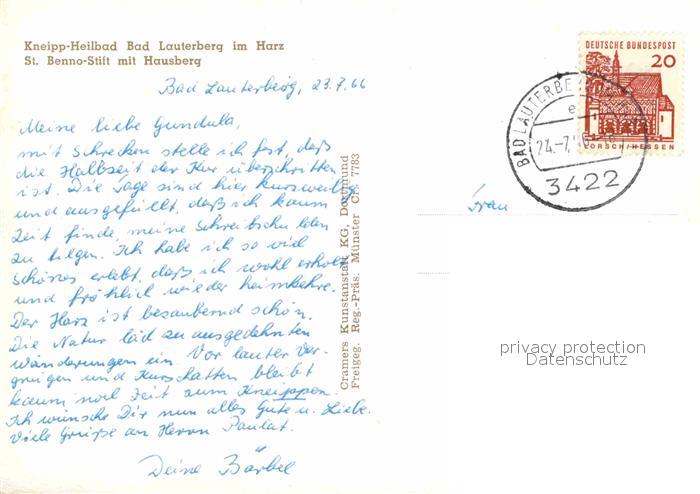 Kneipp-Heilbad Bad Lauterberg im Harz
St. Benno-Stift mit Hausberg
Bad Lauterberg, 23.7.66
Meine liebe Gundula,
mit Schrecken stelle ich fest, daß
die Halbzeit der Kur überschritten
ist. Die Tage sind hier kurzweilig
und ausgefüllt, daß ich kaum
Zeit finde, meine Schreibschulden
zu tilgen. Ich habe ich so viel
Schönes erlebt, daß ich wohl erholt
und fröhlich wieder heimkehre.
Der Harz ist bezaubernd schön.
Die Natur läd zu ausgedehnten
Wanderungen ein Vor lauter Ver-
gnügen und Kurschatten bleibt
kaum noch Zeit zum Kneippen.
Ich wünsche Dir nun alles Gute u. Liebe.
Viele Grüße an Herrn
Deine Bärbel
Cramers Kunstanstalt KG. Dortmund
Freigeg. Reg.-Präs. Münster Cr. 7783
DEUTSCHE BUNDESPOST
20
LORSCH/HESSEN
BAD LAUTERBE
e
24.-7.
3422
Frau
privacy protection
Datenschutz